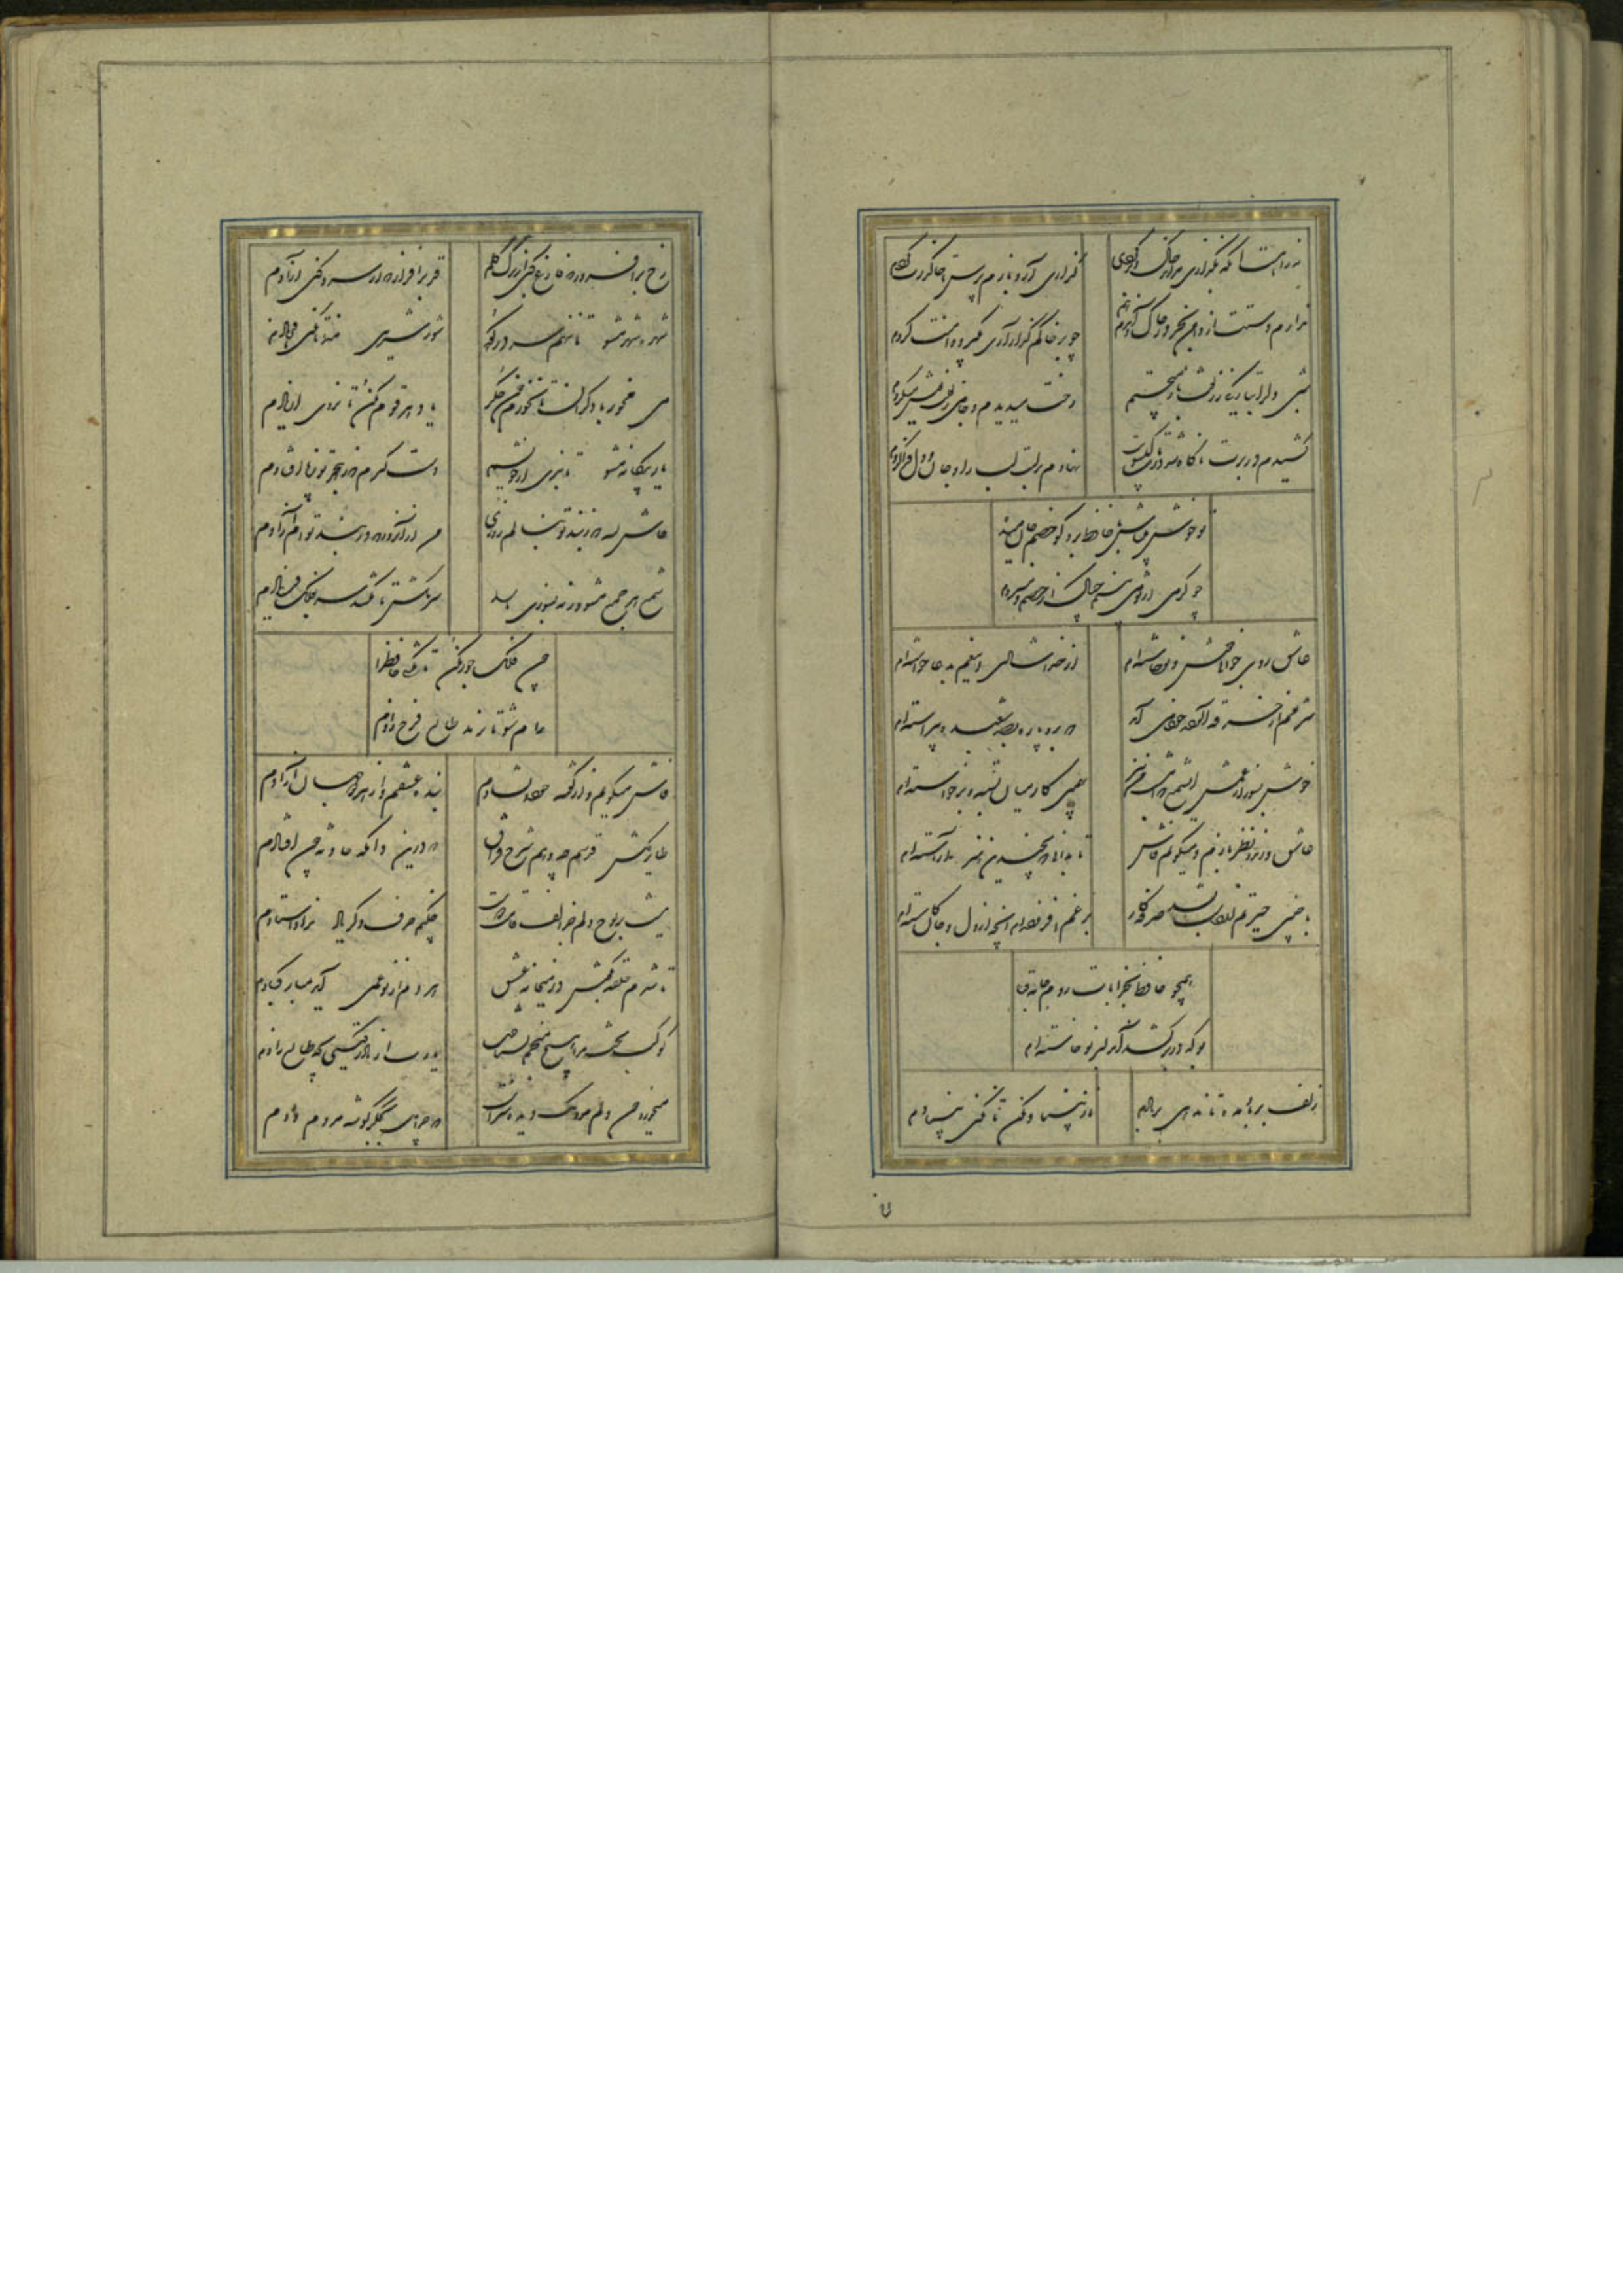 نه راهست اینکه بگذاری مرا بر خاک و بگریزی
گذاری آر و بازم پرس تا خاک رهت گردم
ندارم دستت از دامن بجز در خاک و آن دم هم
چو بر خاکم گذار آری بگیرد دامنت گردم
شبی دل را بتاریکی ز زلفت باز میجستم
رخت میدیدم و جامی ز لعلت باز میخوردم
کشیدم در برت ناگاه و شد در تاب گیسویت
نهادم بر لبت لب را و جان و دل فدا کردم
تو خوش میباش با حافظ برو گو خصم جان میده
چو گرمی از تو می بینم چه باک از خصم دم سردم
عاشق روی جوانی خوش نوخاسته ام
از خدا شادی این غم بدعا خواسته ام
شرمم از خرقه آلوده خود می آید
که برو پاره بصد شعبده پیراسته ام
خوش بسوز از غمش ای شمع که امشب من نیز
بهمین کار میان بسته و برخاسته ام
عاشق و رند و نظربازم و میگویم فاش
تا بدانی که بچندین هنر آراسته ام
با چنین حیرتم از دست بشد صرفه کار
بر غم افزوده ام آنچه از دل و جان کاسته ام
همچو حافظ بخرابات روم جامه قبا
بو که در بر کشد آن دلبر نوخاسته ام
زلف بر باد مده تا ندهی بر بادم
ناز بنیاد مکن تا نکنی بنیادم
رخ برافروز که فارغ کنی از برگ گلم
قد برافراز که از سرو کنی آزادم
شهره شهر مشو تا ننهم سر در کوه
شور شیرین منما تا نکنی فرهادم
می مخور با دگران تا نخورم خون جگر
یاد هر قوم مکن تا نروی از یادم
یار بیگانه مشو تا نبری از خویشم
چون فلک جور مکن تا نکشی حافظ را
رام شو تا بدهد طالع فرخ دادم
فاش میگویم و از گفته خود دلشادم
بنده عشقم و از هر دو جهان آزادم
طایر گلشن قدسم چه دهم شرح فراق
که درین دامگه حادثه چون افتادم
نیست بر لوح دلم جز الف قامت یار
چکنم حرف دگر یاد نداد استادم
تا شدم حلقه بگوش در میخانه عشق
هر دم از نو غمی آید بمبارکبادم
کوکب بخت مرا هیچ منجم نشناخت
یارب از مادر گیتی بچه طالع زادم
میخورد خون دلم مردمک دیده سزاست
که چرا دل بجگرگوشه مردم دادم